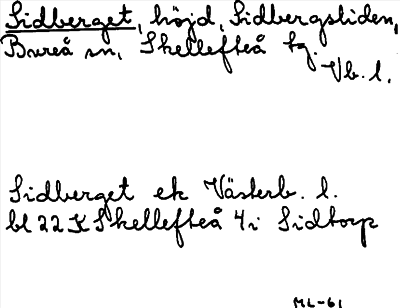 Sidberget, höjd, Sidbergsliden,
Bureå sn, Skellefteå tg.
Vb. l.
Sidberget ek Västerb. l.
bl 22 K Skellefteå 4i Sidtorp
ML-61